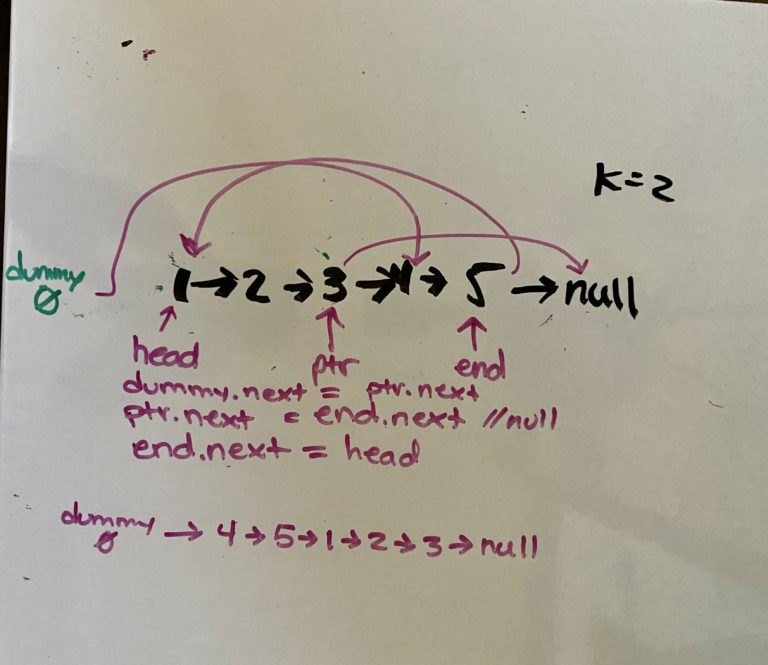 K=2
dummy
Ø
1→2→3→4→5→null
head ptr end
dummy.next = ptr.next
ptr.next = end.next //null
end.next = head
dummy
Ø → 4→5→1→2→3→null